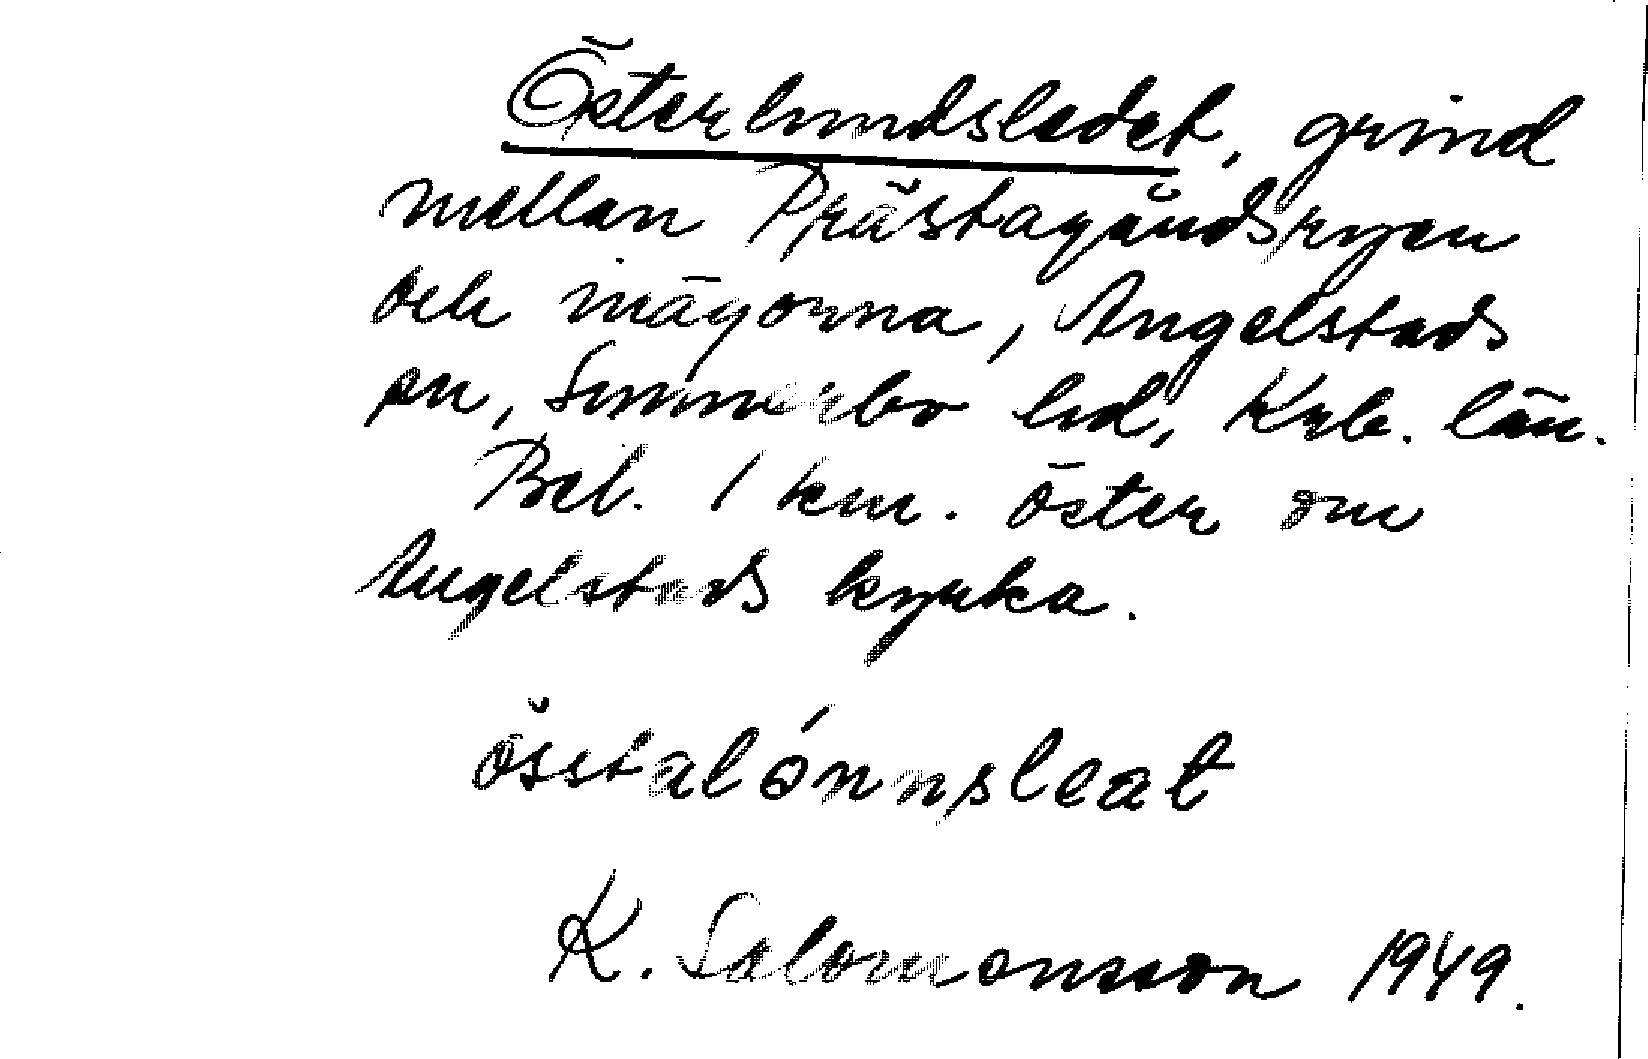 Österlundsledet, grind
mellan Prästagårdsryen
och inägorna, Angelstads
sn, Sunnerbo hd, Krb. län.
Bel. 1 km. öster om
Angelstads kyrka.
össtalónnsleat
K. Salomonsson 1949.